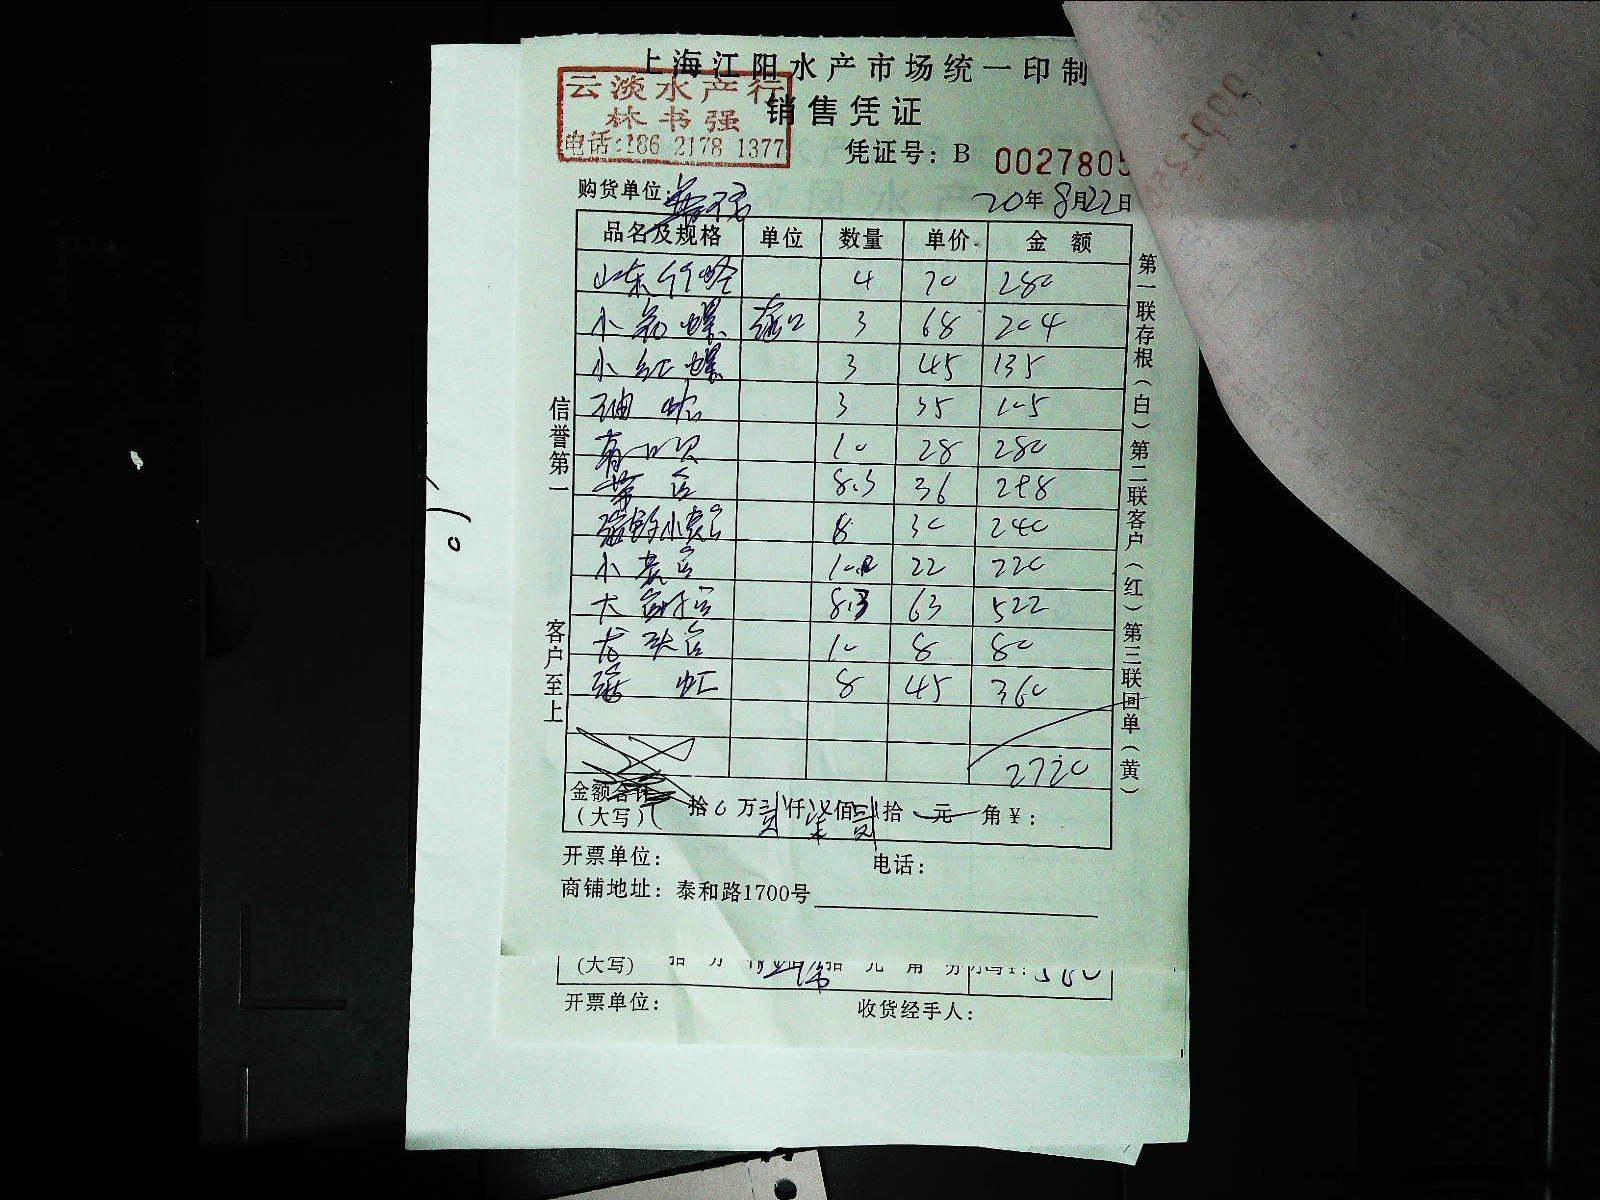 上海江阳水产市场统一印制
云淡水产行
林书强
电话:186 2178 1377
销售凭证
凭证号: B 0027805
购货单位:
20年8月22日
品名及规格 单位 数量 单价 金额
山东竹蛏 4 70 280
小 螺 3 68 204
小红螺 3 45 135
油蛤 3 35 105
青口贝 10 28 280
8.3 36 298
8 30 240
小黄 10 22 220
大 8.3 63 522
龙头 10 8 80
虹 8 45 360
2720
金额合计
(大写) 拾0万贰仟柒佰贰拾 元 角 ¥:
开票单位: 电话:
商铺地址: 泰和路1700号
(大写) 拾 万 仟 佰 拾 元 角 分
开票单位: 收货经手人:
信誉第一
客户至上
第一联存根(白)第二联客户(红)第三联回单(黄)